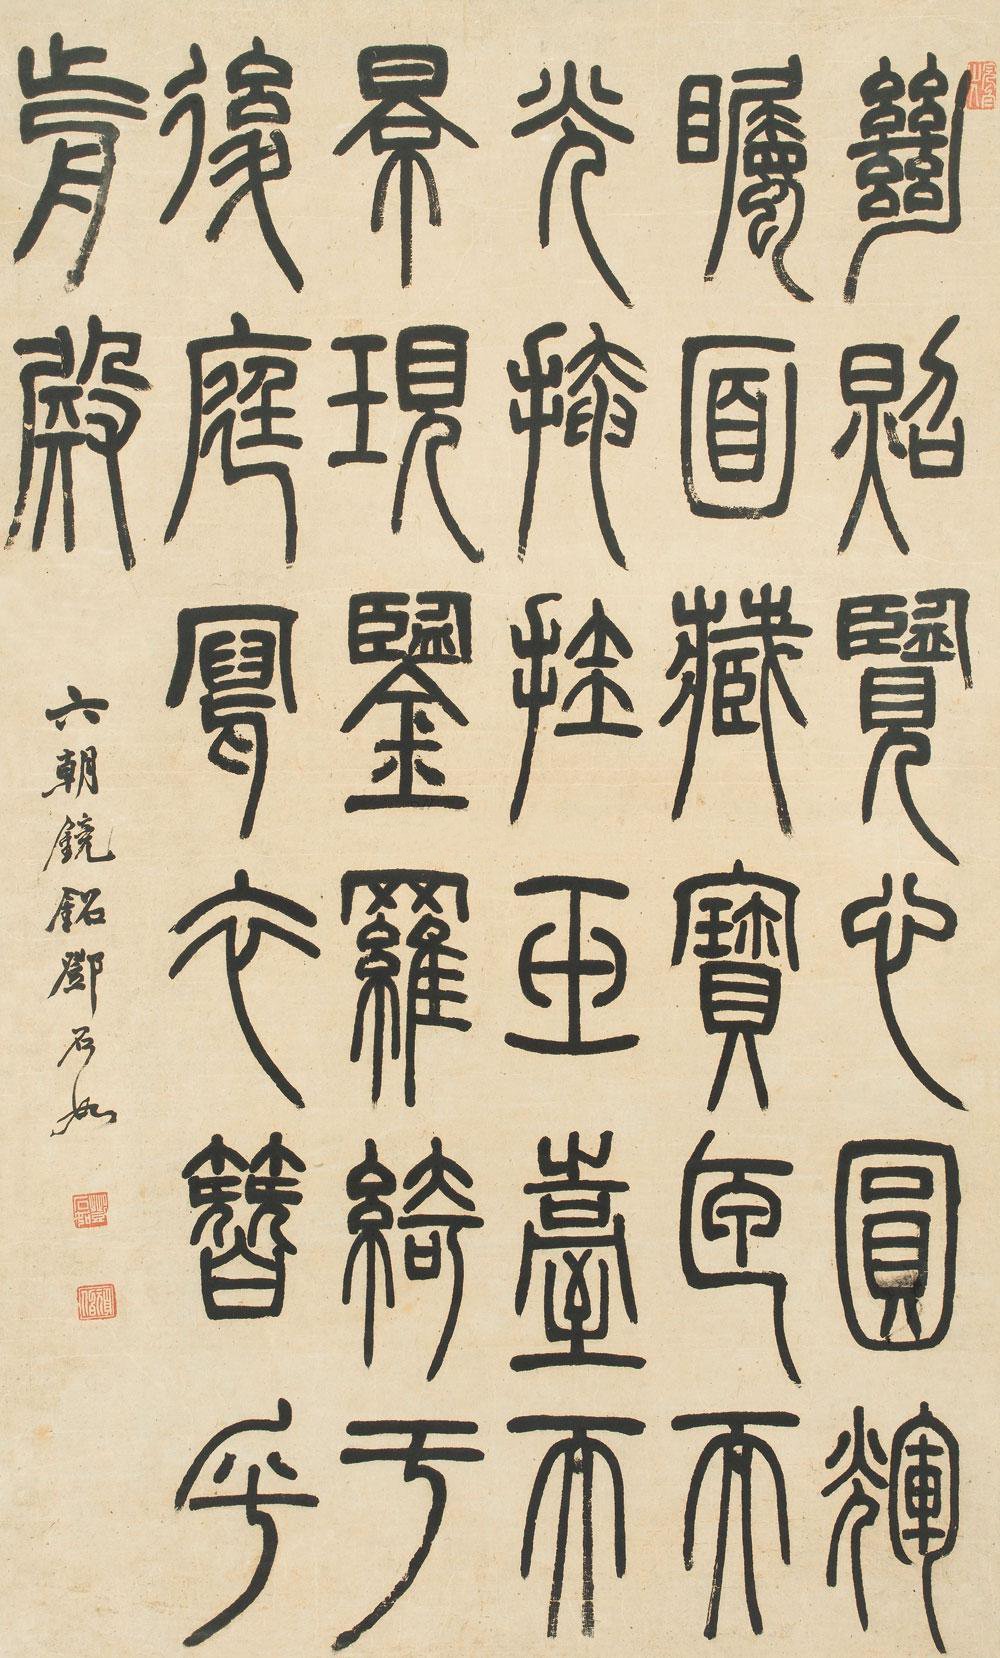 絕照覽心圓輝
矚面藏寶匣而
光掩挂玉臺而
景現鑒羅綺于
後庭寫衣簪乎
歬殿
六朝鏡銘鄧石如